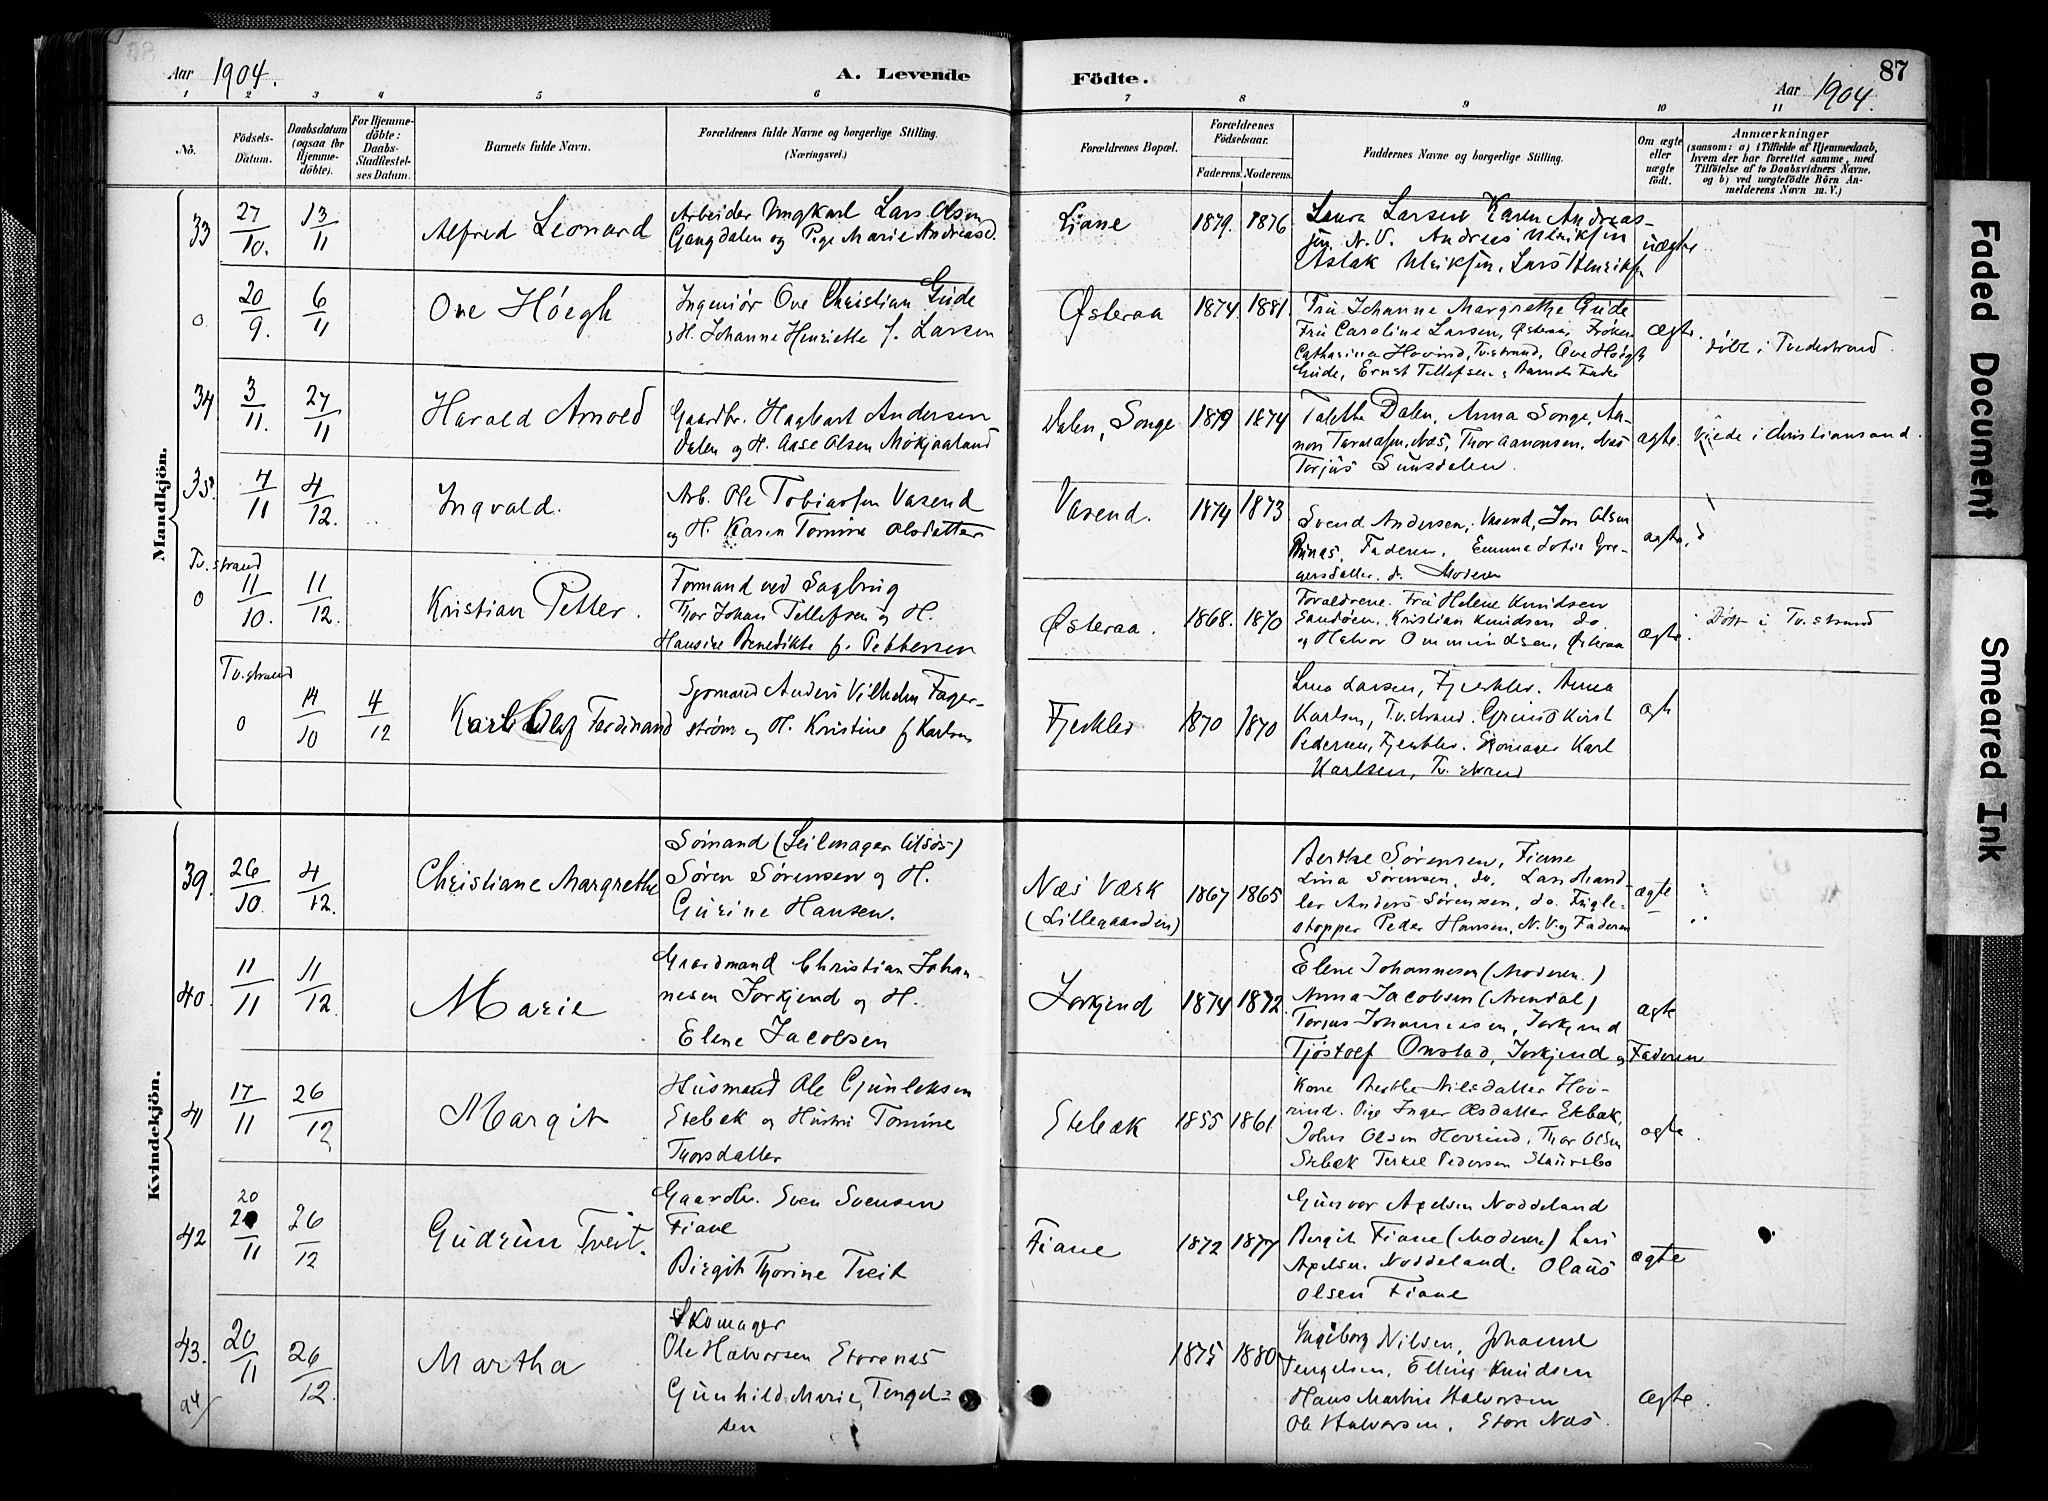 Aar 1904.
A. Levende
Födte.
Aar 1904.
87
1 2 3 4 5 6 7 8 9 10 11
No.
Födsels-
Datum.
Daabsdatum
(ogsaa for
Hjemme-
döbte).
For Hjemme-
döbte:
Daabs-
Stadfæstel-
ses Datum.
Barnets fulde Navn.
Forældrenes fulde Navne og borgerlige Stilling.
(Næringsvei.)
Forældrenes Bopæl.
Forældrenes
Födselsaar.
Faderens. Moderens.
Faddernes Navne og borgerlige Stilling.
Om ægte
eller
uægte
født.
Anmærkninger
(saasom: a) i Tilfælde af Hjemmedaab,
hvem der har forrettet samme, med
Tilföielse af to Daabsvidners Navne,
og b) ved uægtefödte Börn An-
melderens Navn m. V.)
Mandkjön.
33 27/10. 13/11 Alfred Leonard
Arbeider Ungkarl Lars Olsen
Gangdalen og Pige Marie Andreasd.
Liane 1879. 1876
Laura Larsen Karen Andreas-
sen N. V. Andreas Ulriksen
Aslak Ulriksen, Lars Henriksen
uægte
0 20/9. 6/11 Ove Höegh
Ingeniör Ove Christian Gude
H. Johanne Henriette f. Larsen
Østeraa 1874. 1881.
Fru Johanne Margrethe Gude
Fru Caroline Larsen, Østeraa, Frøken
Catharina Hovind, Tv.strand, Ove Høegh
Gude, Ernst Tellefsen, Barnets Fader
ægte.
döbt i Tvedestrand
34 3/11. 27/11 Harald Arnold
Gaardbr. Hagbart Andersen
Dalen og H. Aase Olsen Mökjaaland
Dalen, Songe 1879 1874
Dalen, Anna Songe, Aa-
non Næs, Thor Aanonsen, Næs
Torjus Sunsdalen.
ægte.
i Christiansand.
35. 4/11 4/12. Ingvald.
Arb. Ole Tobiassen Vasend
og H. Karen Tomine Olsdatter
Vasend. 1874 1873
Svend Andersen, Vasend, Jon Olsen
Faderen, Emme Sofie Gre-
gersdatter. do. Moderen
ægte.
Tv. strand
0 11/10. 11/12. Kristian Petter.
Formand ved Sagbrug
Thor Johan Tellefsen og H.
Hansine Benedikte f. Pettersen
Østeraa. 1868. 1870
Forældrene. Fru Helene Knudsen
Sandöen. Kristian Knudsen do.
og Halvor Ommundsen, Østeraa
ægte.
Döbt i Tv. strand
Tv. strand
0 14/10 4/12 Karl Olaf Ferdinand
Sjømand Anders Vilhelm Fager-
strøm og H. Kristine f Karlsen
Fjerkleo 1870 1870
Lina Larsen, Fjerkleo. Anna
Karlsen, Tv.strand.
Pedersen, Fjerkleo. Skomager Karl
Karlsen, Tv. strand
ægte
Kvindekjön.
39. 26/10. 4/12. Christiane Margrethe
Sömand (Seilmager )
Sören Sörensen og H.
Gurine Hansen.
Næs Værk
(Lillegaarden)
1867 1865
Berthe Sørensen, Fiane
Lina Sørensen, do. Landhand-
ler Anders Sørensen, do. Fugle-
stopper Peder Hansen, N.V. og Faderen
ægte
40. 11/11 11/12. Marie
Gaardmand Christian Johan
nesen Jorkjend og H.
Elene Jacobsen
Jorkjend 1874 1872.
Elene Johannesen (Moderen.)
Anna Jacobsen (Arendal)
Torjus Johannesen, Jorkjend
Tjöstolf Onstad, Jorkjend og Faderen
ægte
41 17/11 26/12 Margit
Husmand Ole Gunleksen
Stebæk og Hustru Tomine
Thorsdatter
Stebæk 1855 1861
Kone Berthe Nilsdatter Hov-
rind. Pige Inger Olsdatter Stebæk,
Johs Olsen Hovrind, Thor Olsen
Stebæk Terkel Pedersen
ægte.
42 20 20/11 26/12 Gudrun Tveit.
Gaardbr. Sven Svensen
Fiane
Birgit Thorine Tveit
Fiane 1872 1877
Gunvor Axelsen Noddeland
Bergit Fiane (Moderen) Lars
Axelsen. Noddeland. Olaus
Olsen Fiane
ægte
43. 20/11 26/12. Martha
Skomager
Ole Halvorsen Storenæs
Gunhild Marie, Tengel-
sen
1875 1880
Ingeborg Nilsen, Johanne
Tengelsen, Elling Knudsen
Hans Martin Halvorsen
Ole Halvorsen, Store Næs.
ægte.
Faded Document
Smeared Ink